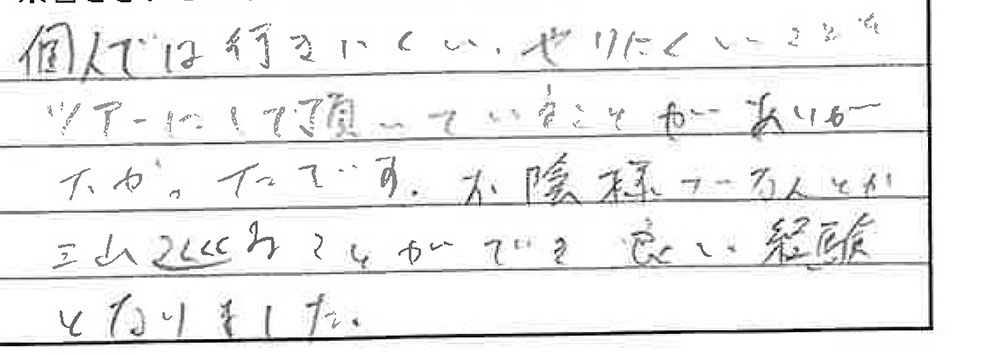 個人では行きにくい、やりにくいことを
ツアーにして頂いていることがあリが
たかったです。お陰様で万人とか
三山 ることができ良い経験
となりました。